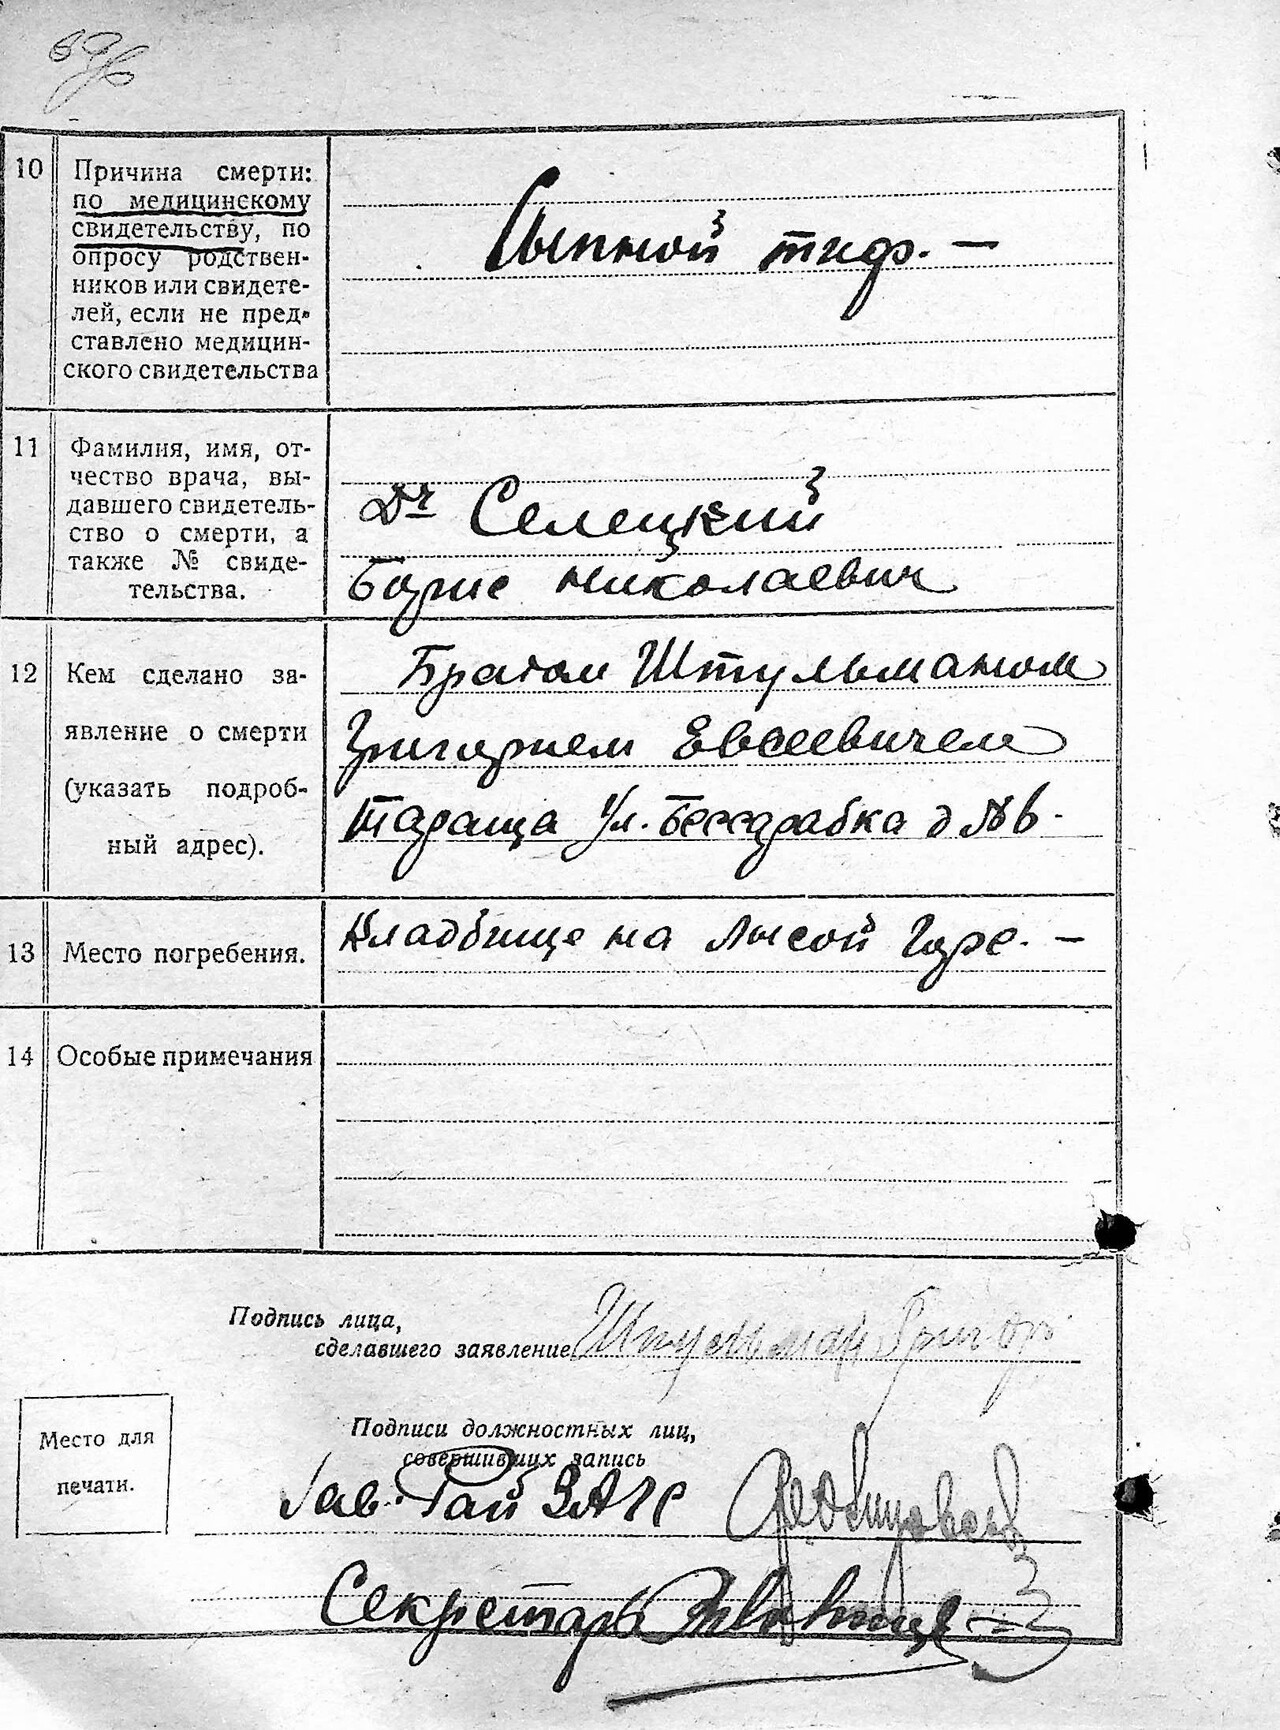 10
Причина смерти:
по медицинскому
свидетельству, по
опросу родствен-
ников или свидете-
лей, если не пред-
ставлено медицин-
ского свидетельства
Сыпной тиф. —
11
Фамилия, имя, от-
чество врача, вы-
давшего свидетель-
ство о смерти, а
также № свиде-
тельства.
Д-г Селецкий
Борис Николаевич
12
Кем сделано за-
явление о смерти
(указать подроб-
ный адрес).
Братом Штульманом
Григорием Евсеевичем
Тараща Ул. Бессарабка д №
13
Место погребения.
Кладбище на Лысой Горе. —
14
Особые примечания
Подпись лица,
сделавшего заявление
Штульман Григор
Место для
печати.
Подписи должностных лиц,
совершивших запись
Зав. Рай ЗАГС
Секретарь